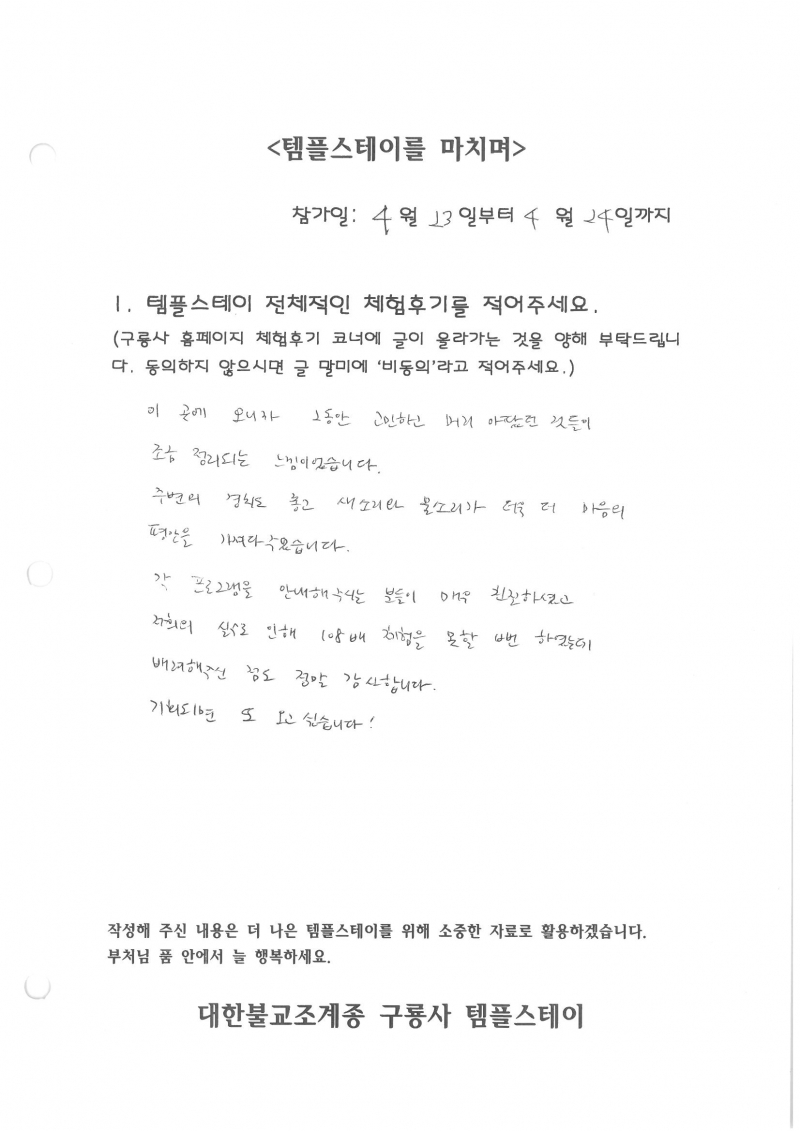 <템플스테이를 마치며>
참가일: 4월 23일부터 4월 24일까지
1. 템플스테이 전체적인 체험후기를 적어주세요.
(구룡사 홈페이지 체험후기 코너에 글이 올라가는 것을 양해 부탁드립니
다. 동의하지 않으시면 글 말미에 '비동의'라고 적어주세요.)
이 곳에 오니까 그동안 고민하고 머리 아팠던 것들이
조금 정리되는 느낌이었습니다.
주변의 경치도 좋고 새소리와 물소리가 더욱 더 마음의
평안을 가져다주었습니다.
각 프로그램을 안내해주시는 분들이 매우 친절하셨고
저희의 실수로 인해 108배 체험을 못할 뻔 하였는데
배려해주신 점도 정말 감사합니다.
기회되면 또 오고 싶습니다!
작성해 주신 내용은 더 나은 템플스테이를 위해 소중한 자료로 활용하겠습니다.
부처님 품 안에서 늘 행복하세요.
대한불교조계종 구룡사 템플스테이